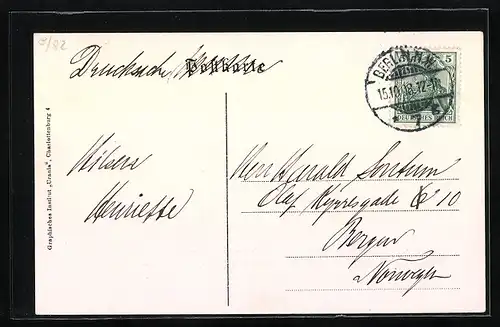 9/22
Drucksache
Postkarte
BERLIN N.W.
15.10.08.12-1
5
DEUTSCHES REICH
Graphisches Institut „Urania“, Charlottenburg 4
Hilsen
Henriette
Herr Harald Sontum
Olaf Kyrresgade 10
Bergen
Norwegen